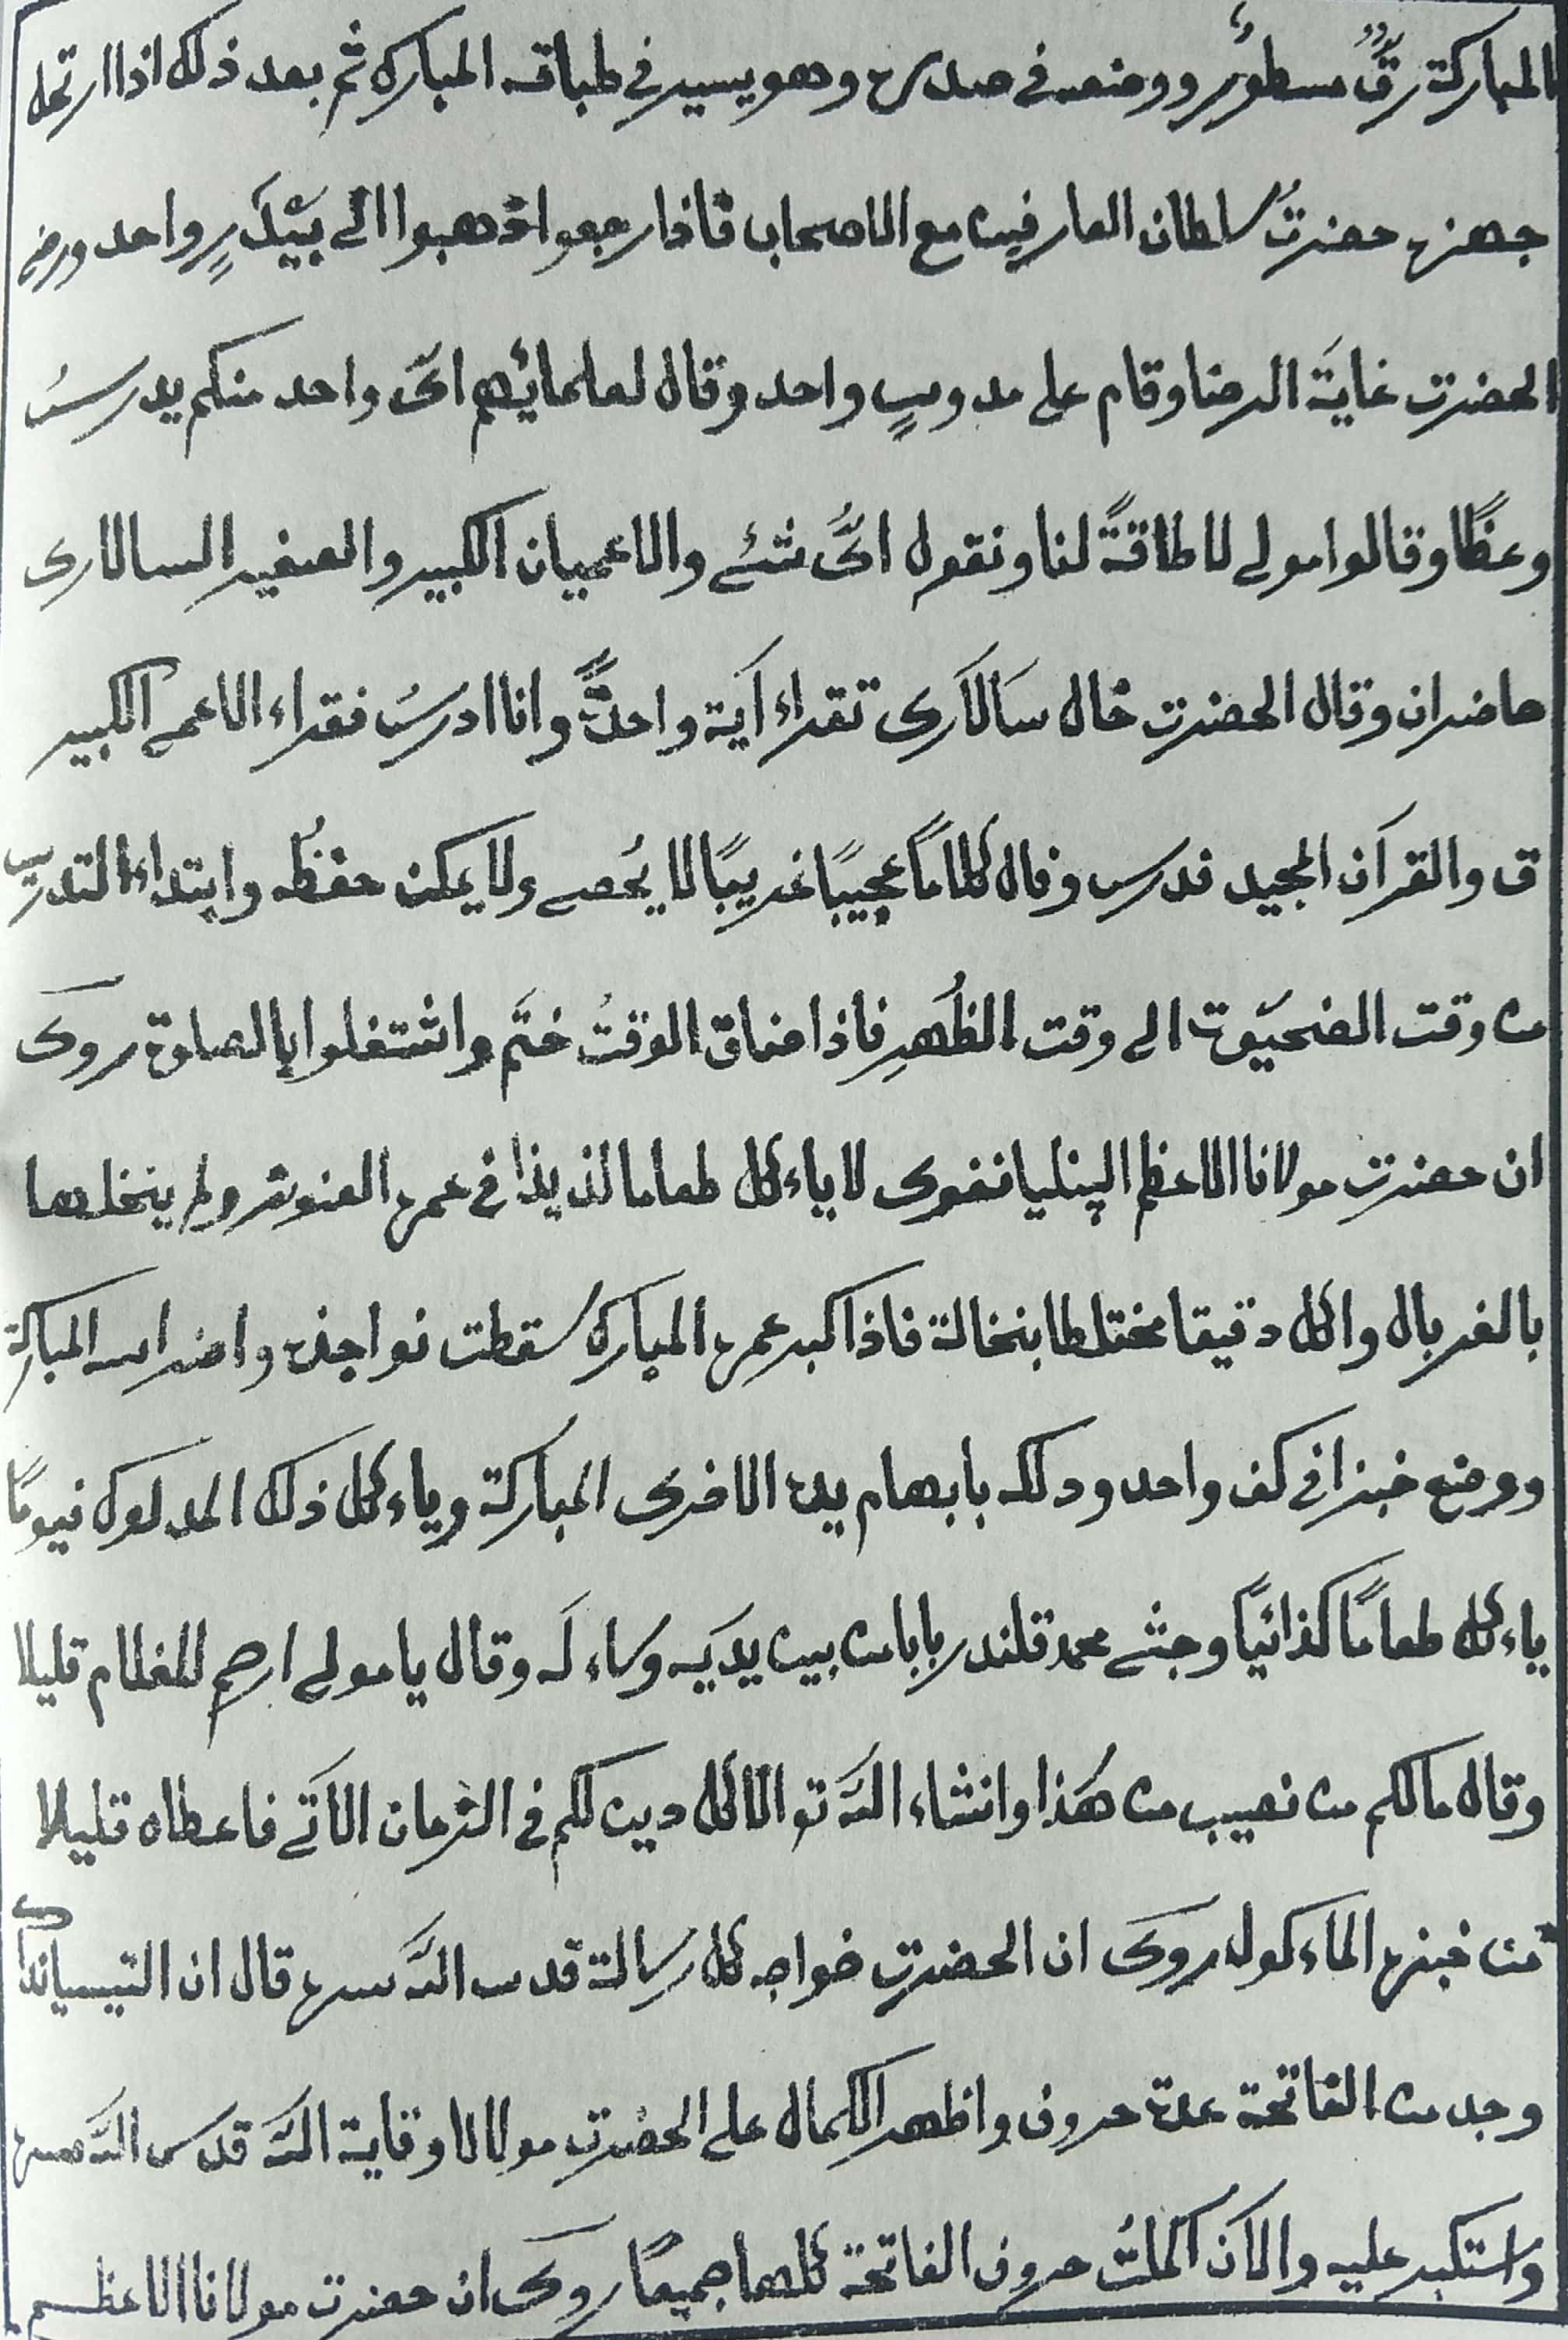 المباركة رَقٌّ مسطورٌ ووضعه في صدره وهو يسير في طباقه المباركه ثم بعد ذلك اذا ارتحل
جهزه حضرتُ سلطان العارفين مع الاصحاب فاذا رجعوا ذهبوا الى بَيْدَرٍ واحد ورضي
الحضرت غايَة الرضا وقام على مدوسٍ واحد وقال لعلمائهم ايّ واحد منكم يدرسُ
وعظًا وقالوا مولى لا طاقةً لنا ونقول ايُّ شئے والاعميان الكبير والصغير السالاری
حاضران وقال الحضرت خال سَالَاری تقراء آية واحدةً وانا ادرسُ فقراء الاعمى الكبير
ق والقرآن المجيد فدرس وقال كلاماً عجيبًا غريبًا لا يُحصے ولا يمكن حفظُه وابتداء التدريس
من وقت الضحيَوة الى وقت الظُهرِ فاذا ضاق الوقتُ ختَم واشتغلوا بالصلوة روی
ان حضرت مولانا الاعظم الپنلیانغوی لا ياءكل طعاما لذيذا فى عمره ولم ينخلها
بالغربال واكل دقيقا مختلطا بنخالة فاذا كبر عمره المباركه سقطت نواجذه واضراسه المباركة
ووضع خبزا فى كف واحد ودلكه بابهام يده الاخرى المباركة وياءكل ذلك المدلوك فيومًا
ياءكل طعامًا كذائيًا وجثے محمد قلندر بابا من بين يديَه وساء لَه وقال يا مولى ارحم للغلام قليلا
وقال مالكم من نصيب من هَذا وانشاء اللّه تو الا اكل دين لكم فى الزمان الآتے فاعطاه قليلا
من خبزه الماءكول روی ان الحضرت خواجه كل رسالة قدس اللّه سره قال ان
وجد من الفاتحة عدة حروف واظهر الكمال على الحضرت مولانا وقاية اللّه قدس اللّه سره
واستكبر عليه والآن اكملتُ حروف الفاتحة كلها جميعًا روی ان حضرت مولانا الاعظم